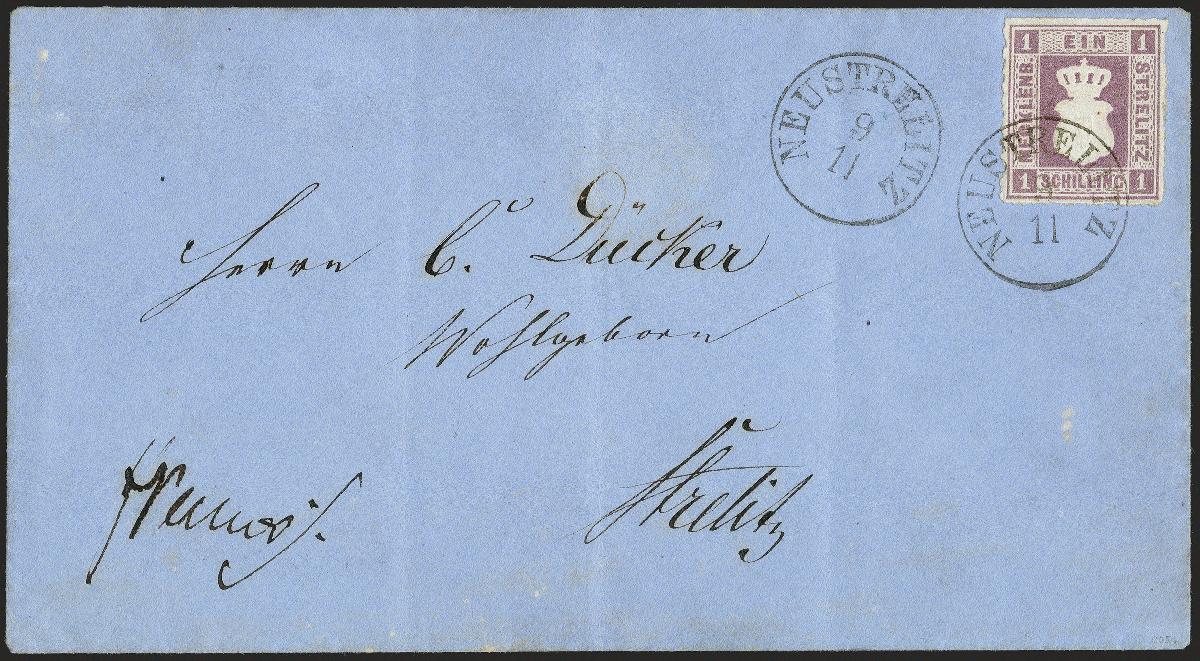 1 EIN 1
MECKLENB
STRELITZ
1 SCHILLING 1
NEUSTRELITZ
9
11
NEUSTRELITZ
9
11
Herrn C. Dücker
Wohlgeborn
Strelitz